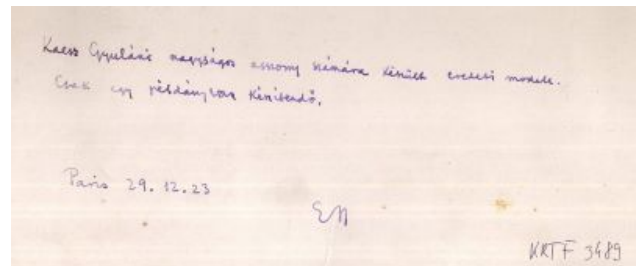 Kaesz Gyuláné nagyságos asszony számára készült eredeti modell.
Csak egy példányban készítendő.
Paris 29. 12. 23
EM
KRTF 3489